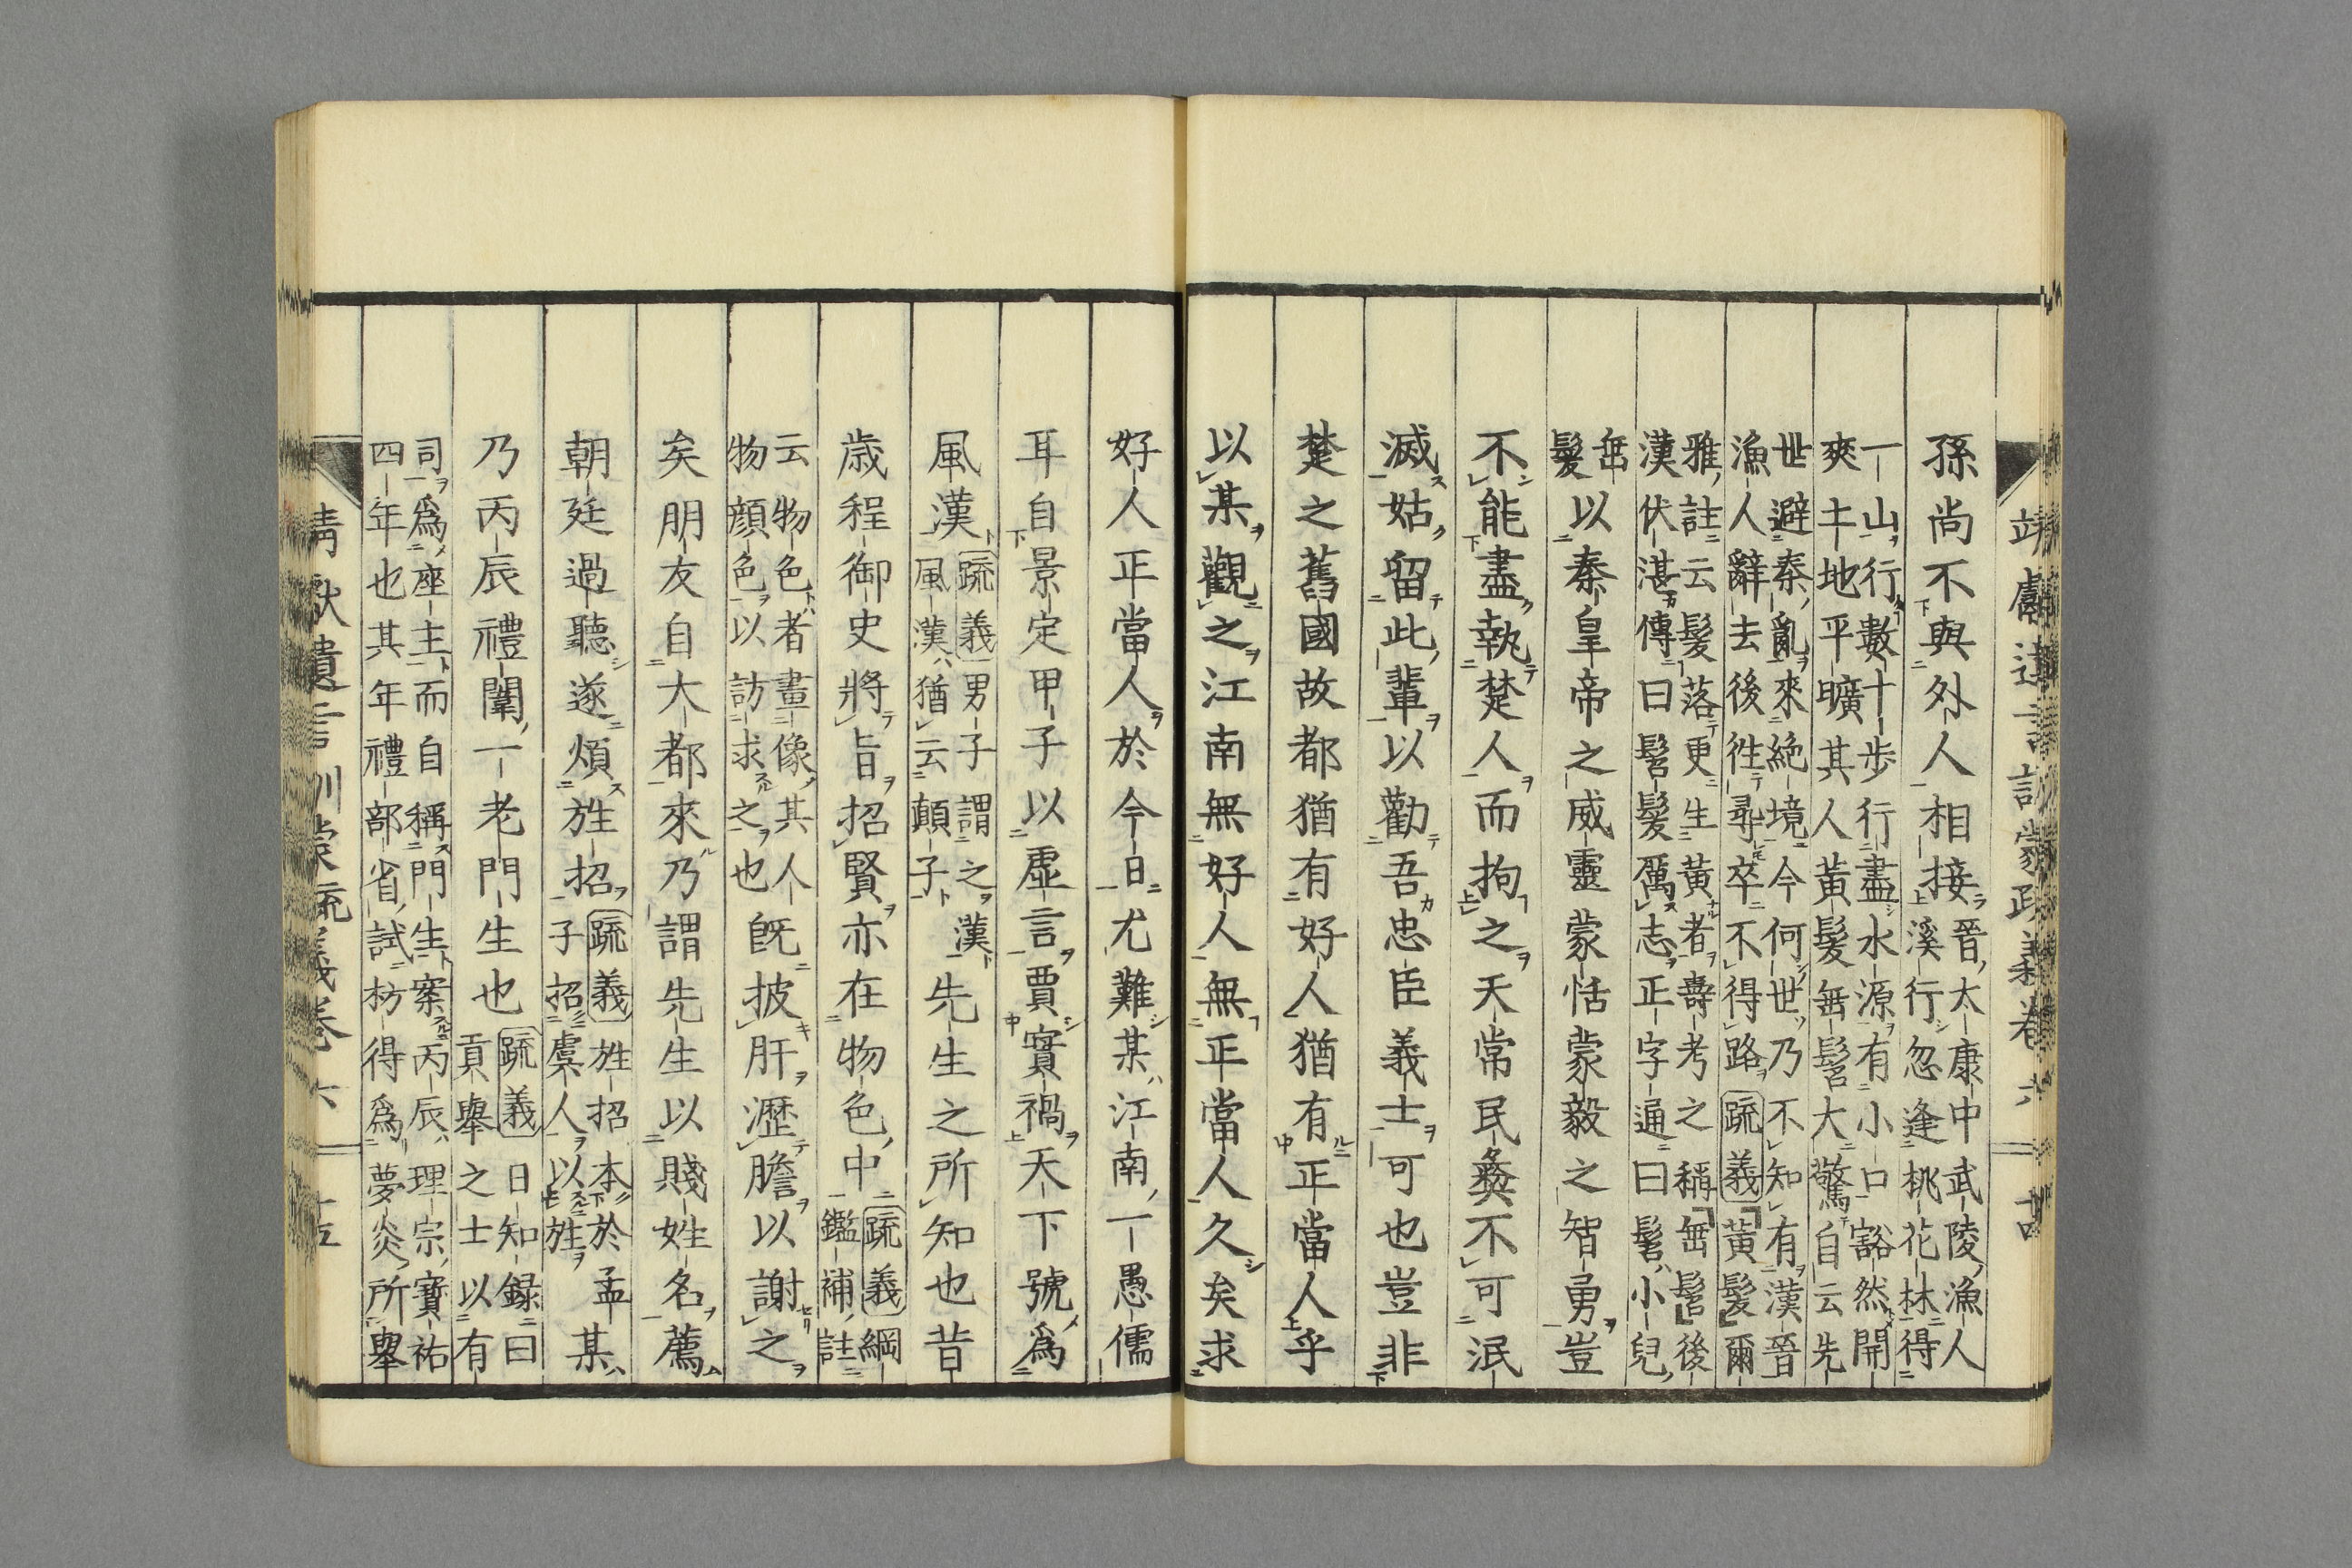 靖獻遺言訓蒙疏義卷六 十四
孫尚不與外人相接晉太康中武陵漁人
溪行忽逢桃花林得
一山行數十步行盡水源有小口豁然開
爽土地平曠其人黃髮無髫大驚自云先
世避秦亂來絶境今何世乃不知有漢晉
漁人辭去後徃尋卒不得路疏義黃髮爾
雅註云髮落更生黃者壽考之稱無髫後
漢伏湛傳曰髫髮厲志正字通曰髫小兒
髮無以秦皇帝之威靈蒙恬蒙毅之智勇豈
不能盡執楚人而拘之天常民彝不可泯
滅姑留此輩以勸吾忠臣義士可也豈非
楚之舊國故都猶有好人猶有正當人乎
以某觀之江南無好人無正當人久矣求
好人正當人於今日尤難某江南一愚儒
耳自景定甲子以虛言賈實禍天下號爲
風漢疏義男子謂之漢
風漢猶云顛子先生之所知也昔
歳程御史將旨招賢亦在物色中疏義綱
鑑補註
云物色者畫像其人
物顔色以訪求之也旣披肝瀝膽以謝之
矣朋友自大都來乃謂先生以賤姓名薦
朝廷過聽遂煩旌招疏義旌招本於孟
子招虞人以旌某
乃丙辰禮闈一老門生也疏義日知録曰
貢舉之士以有
司爲座主而自稱門生案丙辰理宗寶祐
四年也其年禮部省試枋得爲夢炎所舉
靖獻遺言訓蒙疏義卷六 十五